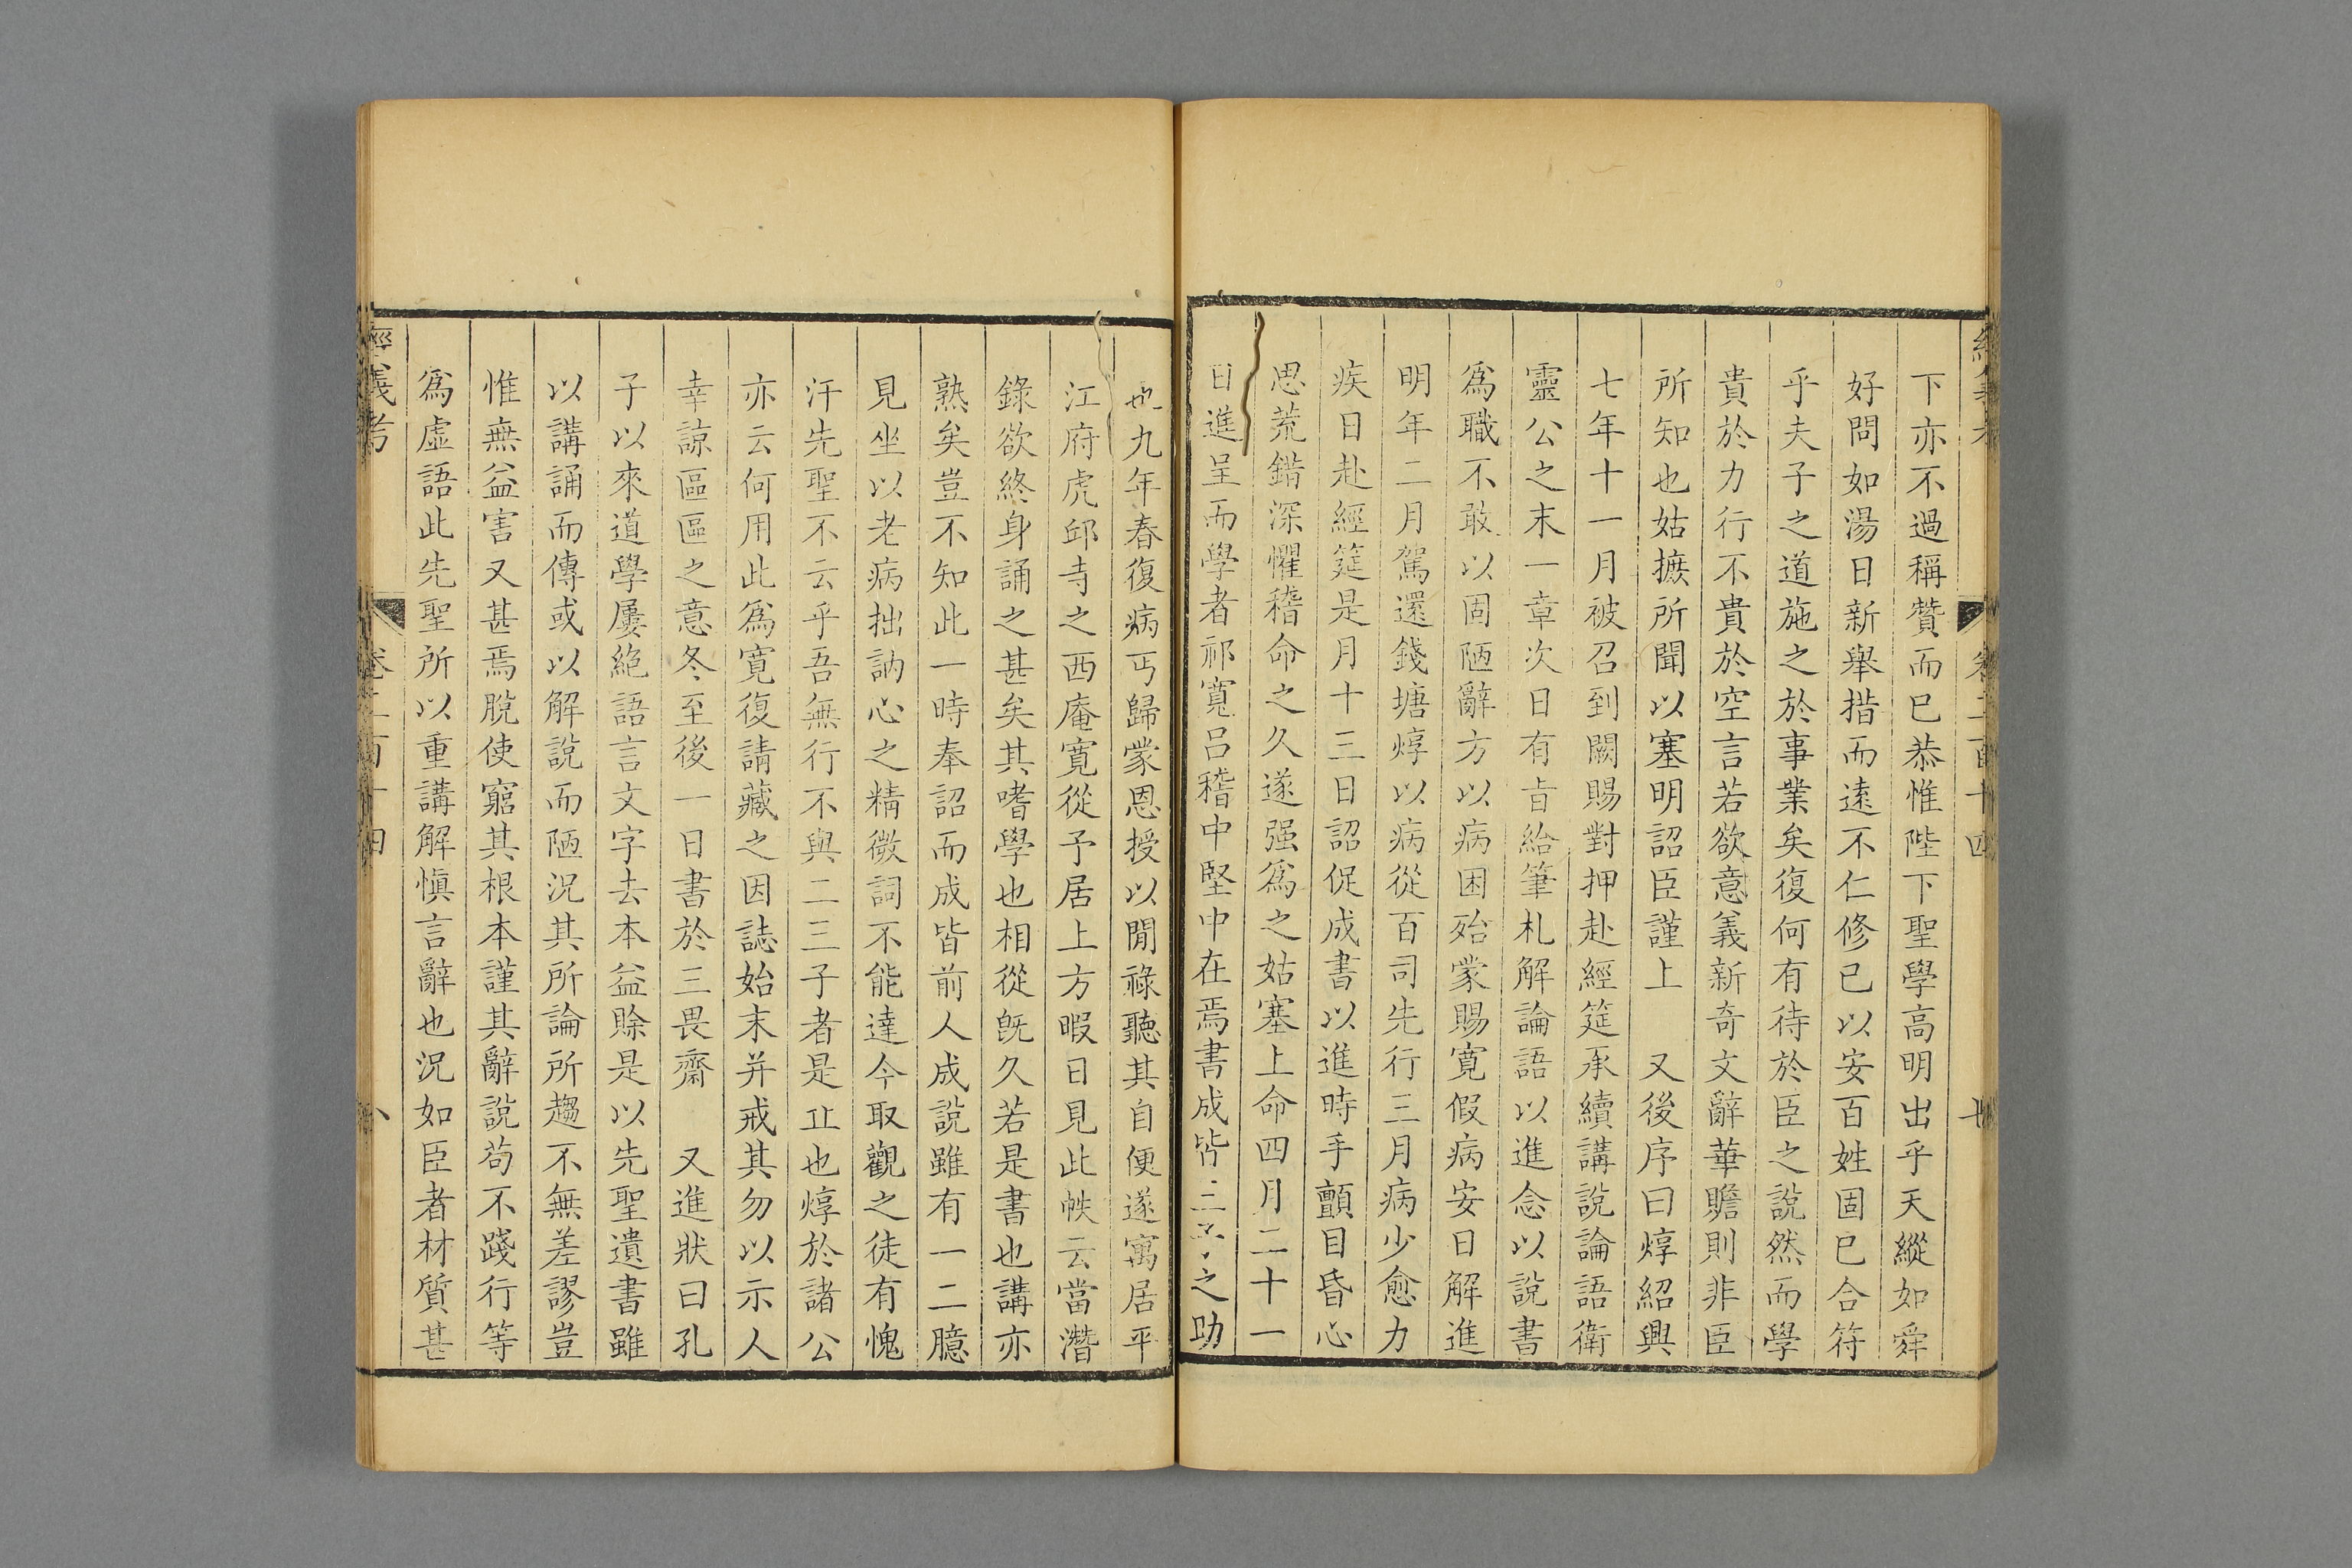 下亦不過稱贊而已恭惟陛下聖學高明出乎天縱如舜
好問如湯日新舉措而遠不仁修己以安百姓固已合符
乎夫子之道施之於事業矣復何有待於臣之說然而學
貴於力行不貴於空言若欲意義新奇文辭華贍則非臣
所知也姑摭所聞以塞明詔臣謹上 又後序曰焞紹興
七年十一月被召到闕賜對押赴經筵承續講說論語衛
靈公之末一章次日有旨給筆札解論語以進念以說書
為職不敢以固陋辭方以病困殆蒙賜寛假病安日解進
明年二月駕還錢塘焞以病從百司先行三月病少愈力
疾日赴經筵是月十三日詔促成書以進時手顫目昏心
思荒錯深懼稽命之久遂强為之姑塞上命四月二十一
日進呈而學者祁寛呂稽中堅中在焉書成皆三子之助
也九年春復病丐歸蒙恩授以閒祿聽其自便遂寓居平
江府虎邱寺之西庵寛從予居上方暇日見此帙云當潛
錄欲終身誦之甚矣其嗜學也相從旣久若是書也講亦
熟矣豈不知此一時奉詔而成皆前人成說雖有一二臆
見坐以老病拙訥心之精微詞不能達今取觀之徒有愧
汗先聖不云乎吾無行不與二三子者是丘也焞於諸公
亦云何用此為寛復請藏之因誌始末并戒其勿以示人
幸諒區區之意冬至後一日書於三畏齋 又進狀曰孔
子以來道學屢絕語言文字去本益賒是以先聖遺書雖
以講誦而傳或以解說而陋況其所論所趨不無差謬豈
惟無益害又甚焉脫使窮其根本謹其辭說苟不踐行等
為虛語此先聖所以重講解愼言辭也況如臣者材質甚
經義考 卷二百十四 八